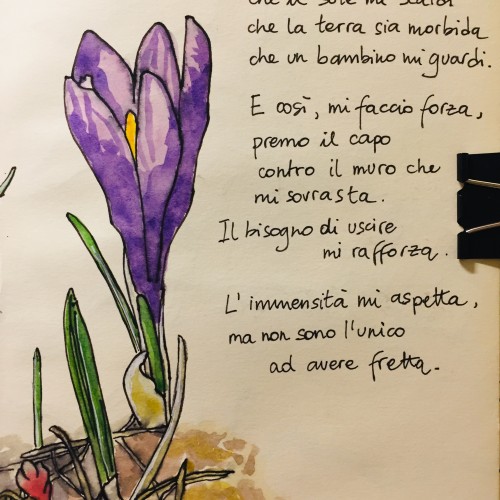 che il sole mi scaldi
che la terra sia morbida
che un bambino mi guardi.
E così, mi faccio forza,
premo il capo
contro il muro che
mi sovrasta.
Il bisogno di uscire
mi rafforza.
L'immensità mi aspetta,
ma non sono l'unico
ad avere fretta.